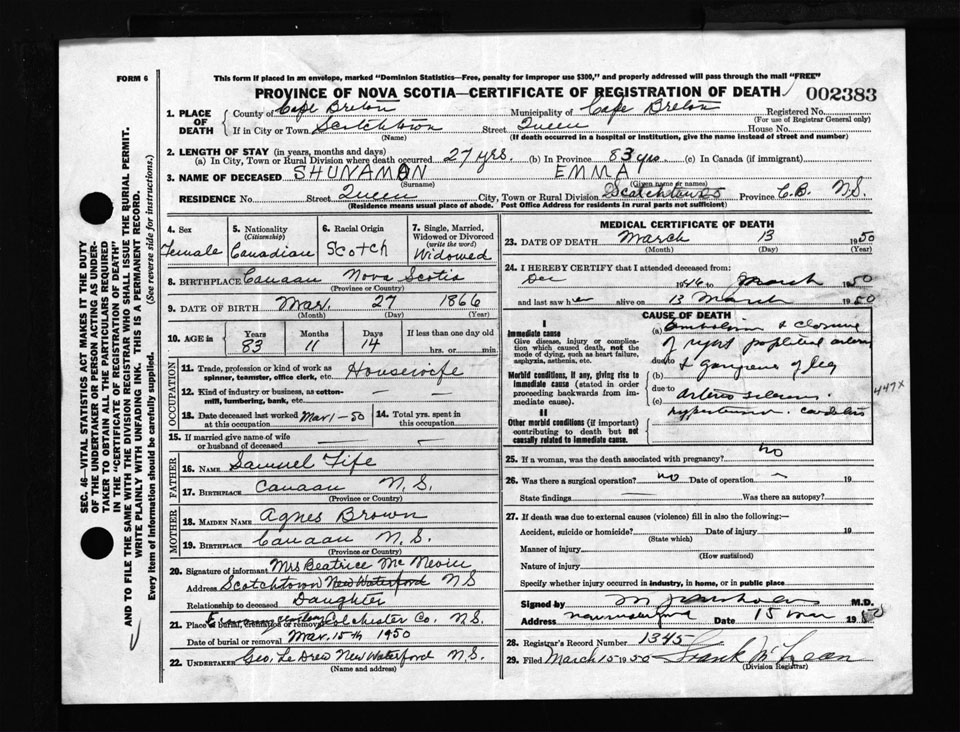 FORM 6
This form if placed in an envelope, marked "Dominion Statistics—Free, penalty for improper use $300," and properly addressed will pass through the mail "FREE"
PROVINCE OF NOVA SCOTIA—CERTIFICATE OF REGISTRATION OF DEATH
002383
1. PLACE OF DEATH
County of Cape Breton Municipality of Cape Breton Registered No.
(For use of Registrar General only)
If in City or Town Scotchtown Street Queen House No.
(Name) (If death occurred in a hospital or institution, give the name instead of street and number)
2. LENGTH OF STAY (in years, months and days)
(a) In City, Town or Rural Division where death occurred 27 yrs. (b) In Province 83 yrs. (c) In Canada (if immigrant)
3. NAME OF DECEASED SHUNAMON EMMA
(Surname) (Given name or names)
RESIDENCE No. Street Queen City, Town or Rural Division Scotchtown Province C.B. N.S.
(Residence means usual place of abode. Post Office Address for residents in rural parts not sufficient)
4. Sex Female
5. Nationality (Citizenship) Canadian
6. Racial Origin Scotch
7. Single, Married, Widowed or Divorced (write the word) Widowed
8. BIRTHPLACE Canaan Nova Scotia
(Province or Country)
9. DATE OF BIRTH Mar. 27 1866
(Month) (Day) (Year)
10. AGE in Years 83 Months 11 Days 14 If less than one day old hrs. or min.
OCCUPATION
11. Trade, profession or kind of work as spinner, teamster, office clerk, etc. Housewife
12. Kind of industry or business, as cotton-mill, lumbering, bank, etc. —
13. Date deceased last worked at this occupation Mar 1 - 50
14. Total yrs. spent in this occupation —
15. If married give name of wife or husband of deceased — —
FATHER
16. NAME Samuel Fife
17. BIRTHPLACE Canaan N.S.
(Province or Country)
MOTHER
18. MAIDEN NAME Agnes Brown
19. BIRTHPLACE Canaan N.S.
(Province or Country)
20. Signature of informant Mrs Beatrice Mc
Address Scotchtown New Waterford NS
Relationship to deceased Daughter
21. Place of burial, cremation or removal Colchester Co. N.S.
Date of burial or removal Mar. 15th 1950
22. UNDERTAKER Geo. Le Drew New Waterford N.S.
(Name and address)
MEDICAL CERTIFICATE OF DEATH
23. DATE OF DEATH March 13 1950
(Month) (Day) (Year)
24. I HEREBY CERTIFY that I attended deceased from:
Dec 1946 to March 1950
and last saw her alive on 13 March 1950
CAUSE OF DEATH
I
Immediate cause
Give disease, injury or complication which caused death, not the mode of dying, such as heart failure, asphyxia, asthenia, etc.
(a) Embolism & closure
of right popliteal artery
due to
Morbid conditions, if any, giving rise to immediate cause (stated in order proceeding backwards from immediate cause).
(b) & gangrene of leg
due to
(c) arterio sclerosis
447X
II
Other morbid conditions (if important) contributing to death but not causally related to immediate cause.
25. If a woman, was the death associated with pregnancy? no
26. Was there a surgical operation? no Date of operation — 19
State findings — Was there an autopsy?
27. If death was due to external causes (violence) fill in also the following:
Accident, suicide or homicide? Date of injury 19
(State which)
Manner of injury
(How sustained)
Nature of injury
Specify whether injury occurred in industry, in home, or in public place
Signed by M.D.
Address Date 15 Mar 1950
28. Registrar's Record Number 1345
29. Filed March 15 1950 Frank McLean
(Division Registrar)
SEC. 46—VITAL STATISTICS ACT MAKES IT THE DUTY OF THE UNDERTAKER OR PERSON ACTING AS UNDERTAKER TO OBTAIN ALL THE PARTICULARS REQUIRED IN THE "CERTIFICATE OF REGISTRATION OF DEATH"
AND TO FILE THE SAME WITH THE DIVISION REGISTRAR WHO SHALL ISSUE THE BURIAL PERMIT.
WRITE PLAINLY WITH UNFADING INK. THIS IS A PERMANENT RECORD.
Every item of information should be carefully supplied. (See reverse side for instructions.)